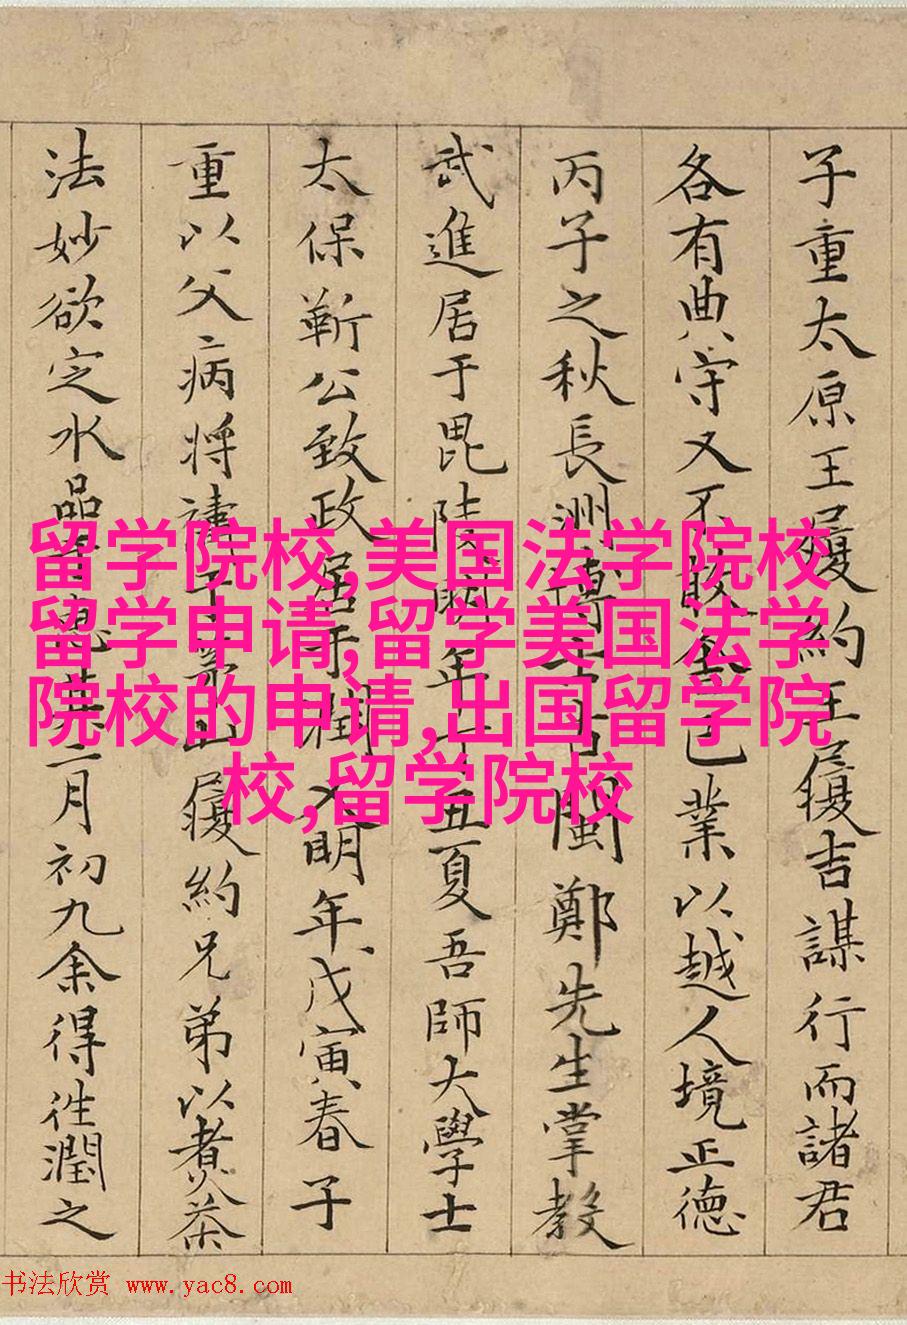 子重太原王履約王履吉謀行而諸君
各有典守又不敢舍己業以越人境正德
丙子之秋長洲博士古閩鄭先生掌教
武進居于毘陵明年丁丑夏吾師大學士
太保靳公致政居于潤又明年戊寅春子
重以父病將禱于茅山履約兄弟以煮茶
法妙欲定水品于惠其二月初九余得往潤之
留学院校,美国法学院校
留学申请,留学美国法学
院校的申请,出国留学院
校,留学院校
书法欣赏 www.yac8.com